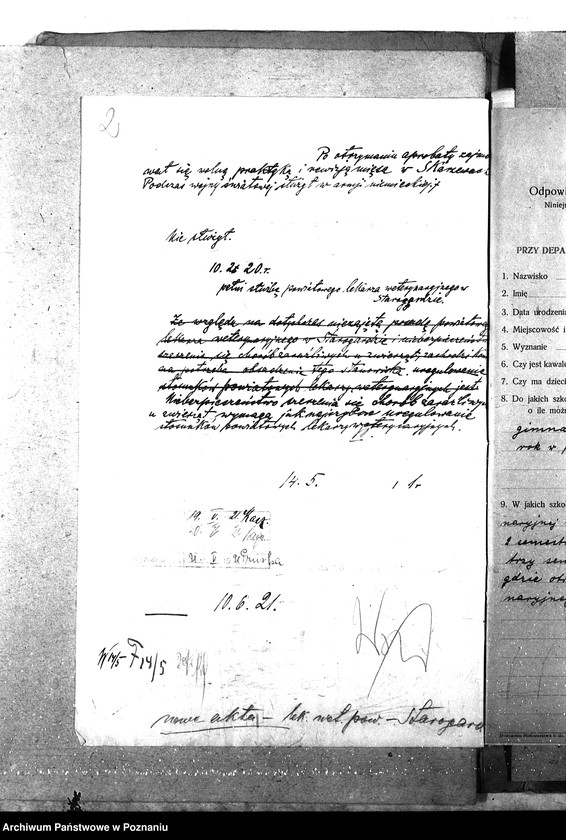 2
Po otrzymaniu aprobaty zajmo
wał się wolną praktyką i rewizją mięsa w Skarszewach
Podczas wojny światowej służył w armji niemieckiej.
Nie służył.
10. 20.r.
pełni służbę powiatowego lekarza weterynaryjnego w
Starogardzie.
Ze względu na dotychczas niezajętą posadę powiatowego
lekarza weterynaryjnego w Starogardzie i niebezpieczeństwo
szerzenia się chorób zaraźliwych u zwierząt, zachodzi
potrzeba obsadzenia tego stanowiska, uregulowanie
stosunków powiatowych lekarzy weterynaryjnych jest
Niebezpieczeństwo szerzenia się chorób zaraźliwych
u zwierząt wymaga jak najszybsze uregulowanie
stosunków powiatowych lekarzy weterynaryjnych.
14. 5. 1 r
19. V. 21 Kacz.
21 V 21
10. 6. 21.
W 14/5 F 14/5
nowe akta – lek. wet. pow. – Starogard
Odpowi
Niniej
PRZY DEPA
1. Nazwisko
2. Imię
3. Data urodzenia
4. Miejscowość i
5. Wyznanie
6. Czy jest kawale
7. Czy ma dzieci
8. Do jakich szkó
o ile może
gimna
rok w
9. W jakich szko
naryjnej
2 semest
trzy sem
gdzie ot
naryjnej
Archiwum Państwowe w Poznaniu